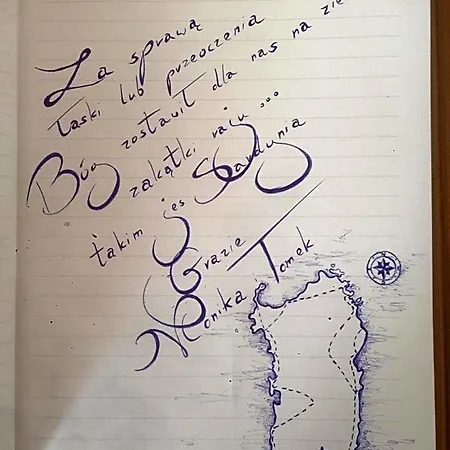 Za sprawą
łaski lub przeoczenia
Bóg zostawił dla nas na zie
zakątki raju ...
takim jes Sardynia
Grazie
Monika Tomek